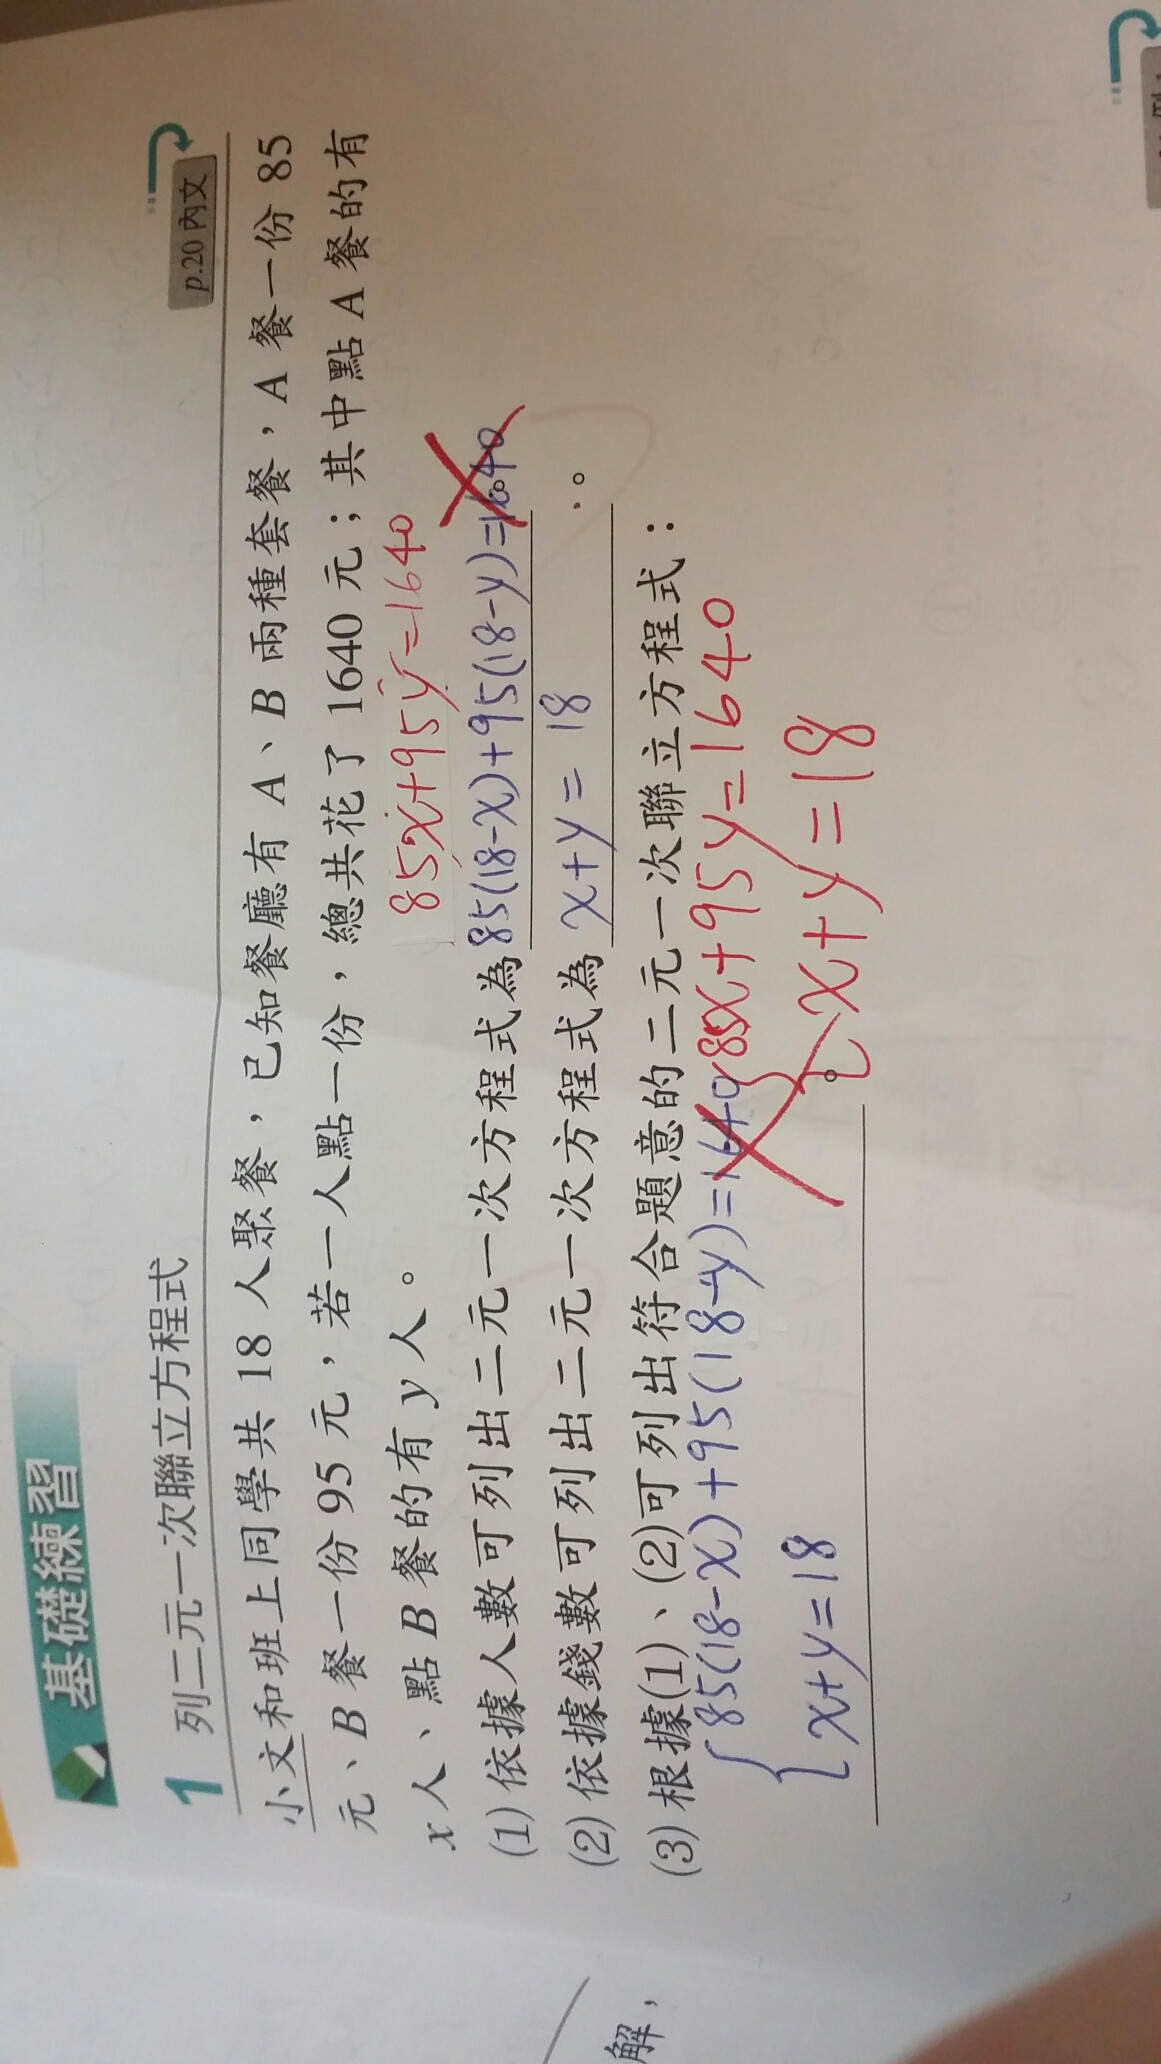 基礎練習
1 列二元一次聯立方程式
p.20 內文
小文和班上同學共 18 人聚餐，已知餐廳有 A、B 兩種套餐，A 餐一份 85
元、B 餐一份 95 元，若一人點一份，總共花了 1640 元；其中點 A 餐的有
x 人、點 B 餐的有 y 人。
85x+95y=1640
(1) 依據人數可列出二元一次方程式為 85(18-x)+95(18-y)=1640。
(2) 依據錢數可列出二元一次方程式為 x+y=18。
(3) 根據(1)、(2)可列出符合題意的二元一次聯立方程式：
{85(18-x)+95(18-y)=1640 {85x+95y=1640
x+y=18 。 x+y=18
解，